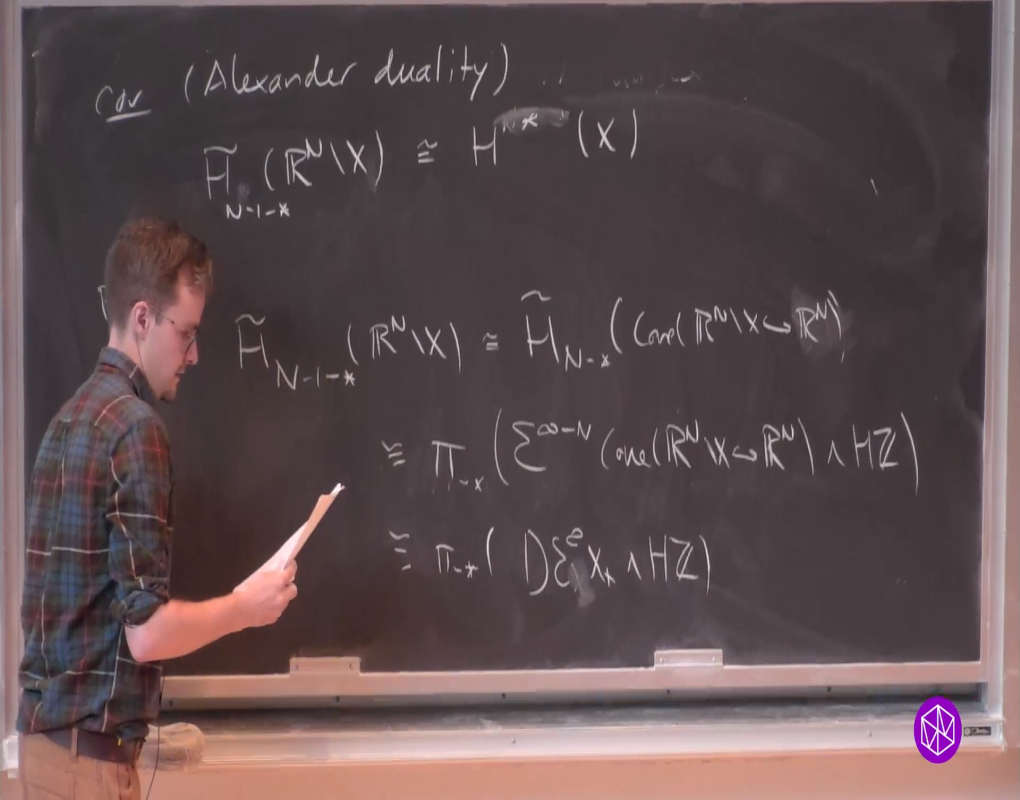 Cor (Alexander duality)
H̃_{N-1-*}(ℝ^N\X) ≅ H (X)
H̃_{N-1-*}(ℝ^N\X) ≅ H̃_{N-*}(Cone(ℝ^N\X ↪ ℝ^N)
≅ π_{-*}(Σ^{∞-N} Cone(ℝ^N\X ↪ ℝ^N) ∧ Hℤ)
≅ π_{-*}(DΣ^∞ X_+ ∧ Hℤ)